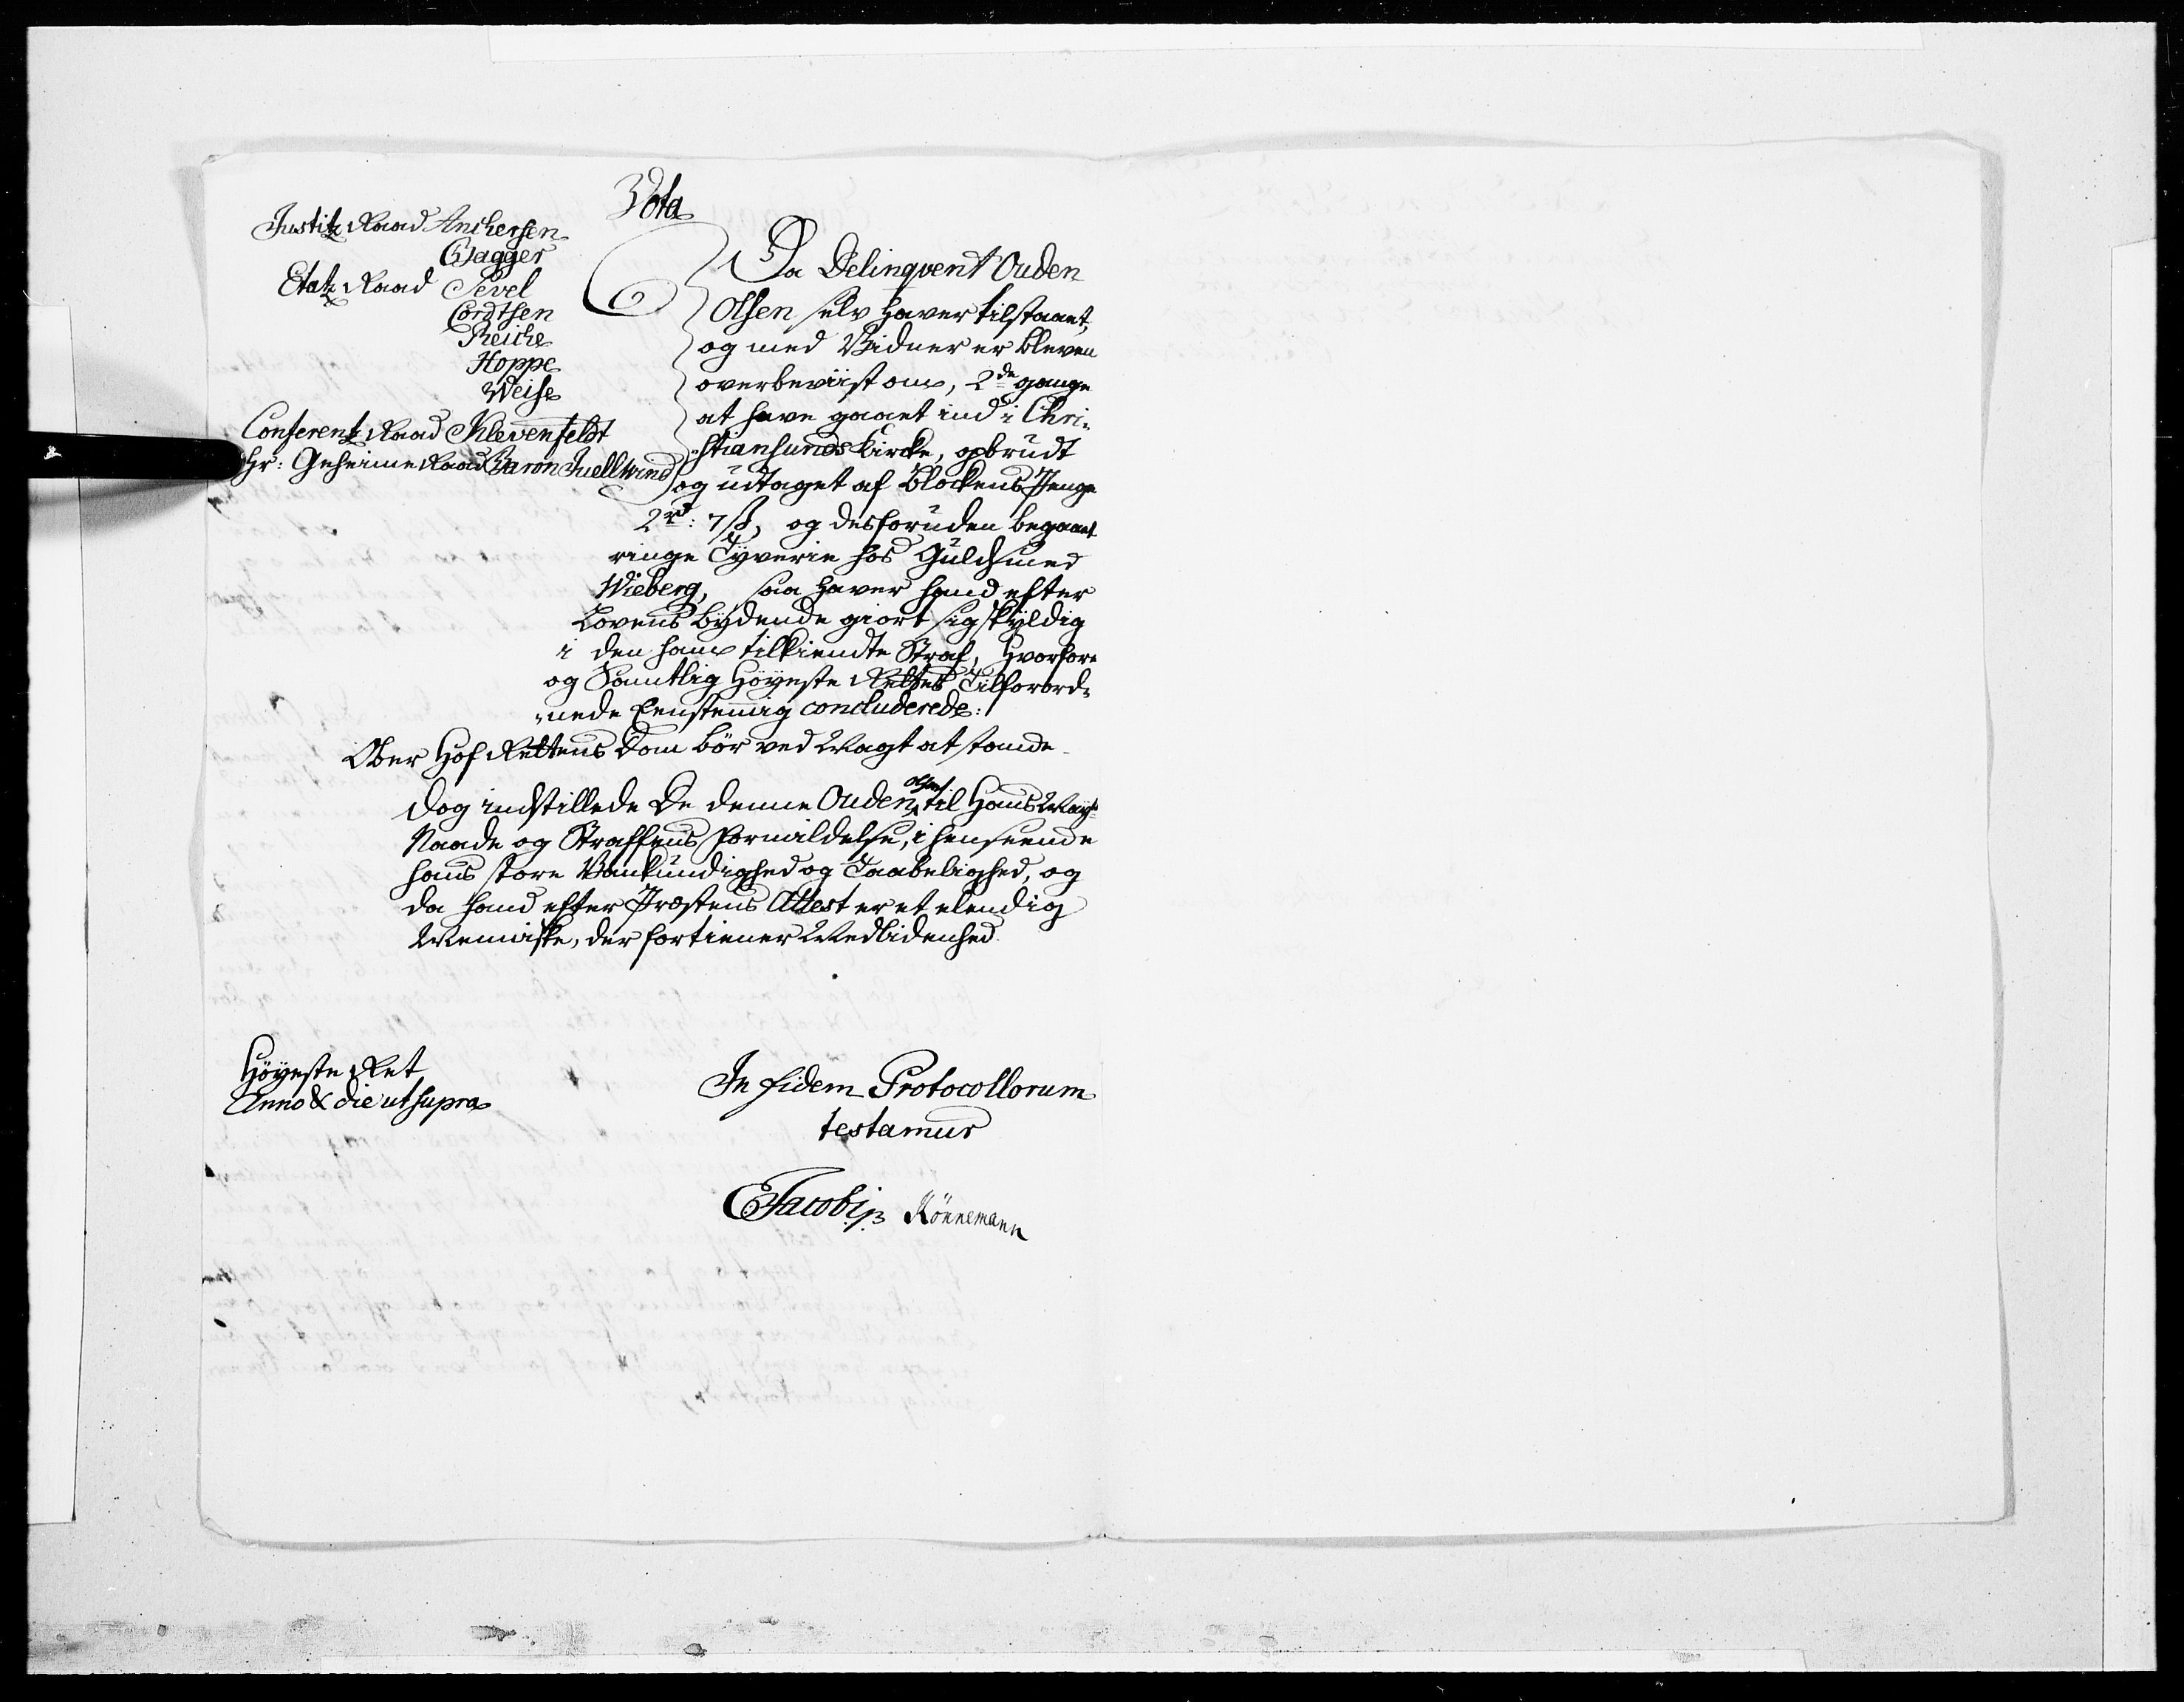 Vota
Justitz Raad Anchersen
Bagger
Etatz Raad Sevel
Cordtsen
Reiche
Hoppe
Weise
Conferentz Raad Klevenfeldt
Hr: Geheime Raad Baron Juell Wind
Da Delinqvent Ouden
Olsen selv haver tilstaaet,
og med Vidner er bleven
overbeviist om, 2de gange
at have gaaet ind i Chri-
-stiansunds Kircke, opbrudt
og udtaget af Blockens Penge
2rd: 7 ß, og desforuden begaaet
ringe Tyverie hos Guldsmed
Wieberg, saa haver hand efter
Lovens bydende giort sig skyldig
i den ham tilkiendte Straf, Hvorfore
og Samtlig Høyeste Rettes Tilforord-
-nede Eenstemig concluderede:
Ober Hof Rettens Dom bør ved Magt at stande
dog indstillede De denne Ouden Olsen til Hans May:
Naade og Straffens Formildelse, i henseende
hans store Vankundighed og Taabelighed, og
da hand efter Præstens Attest er et elendig
Menniske, der fortiener Medlidenhed.
Høyeste Ret
Anno & die ut supra
In fidem Protocollorum
testamur
EJacobi Könnemann